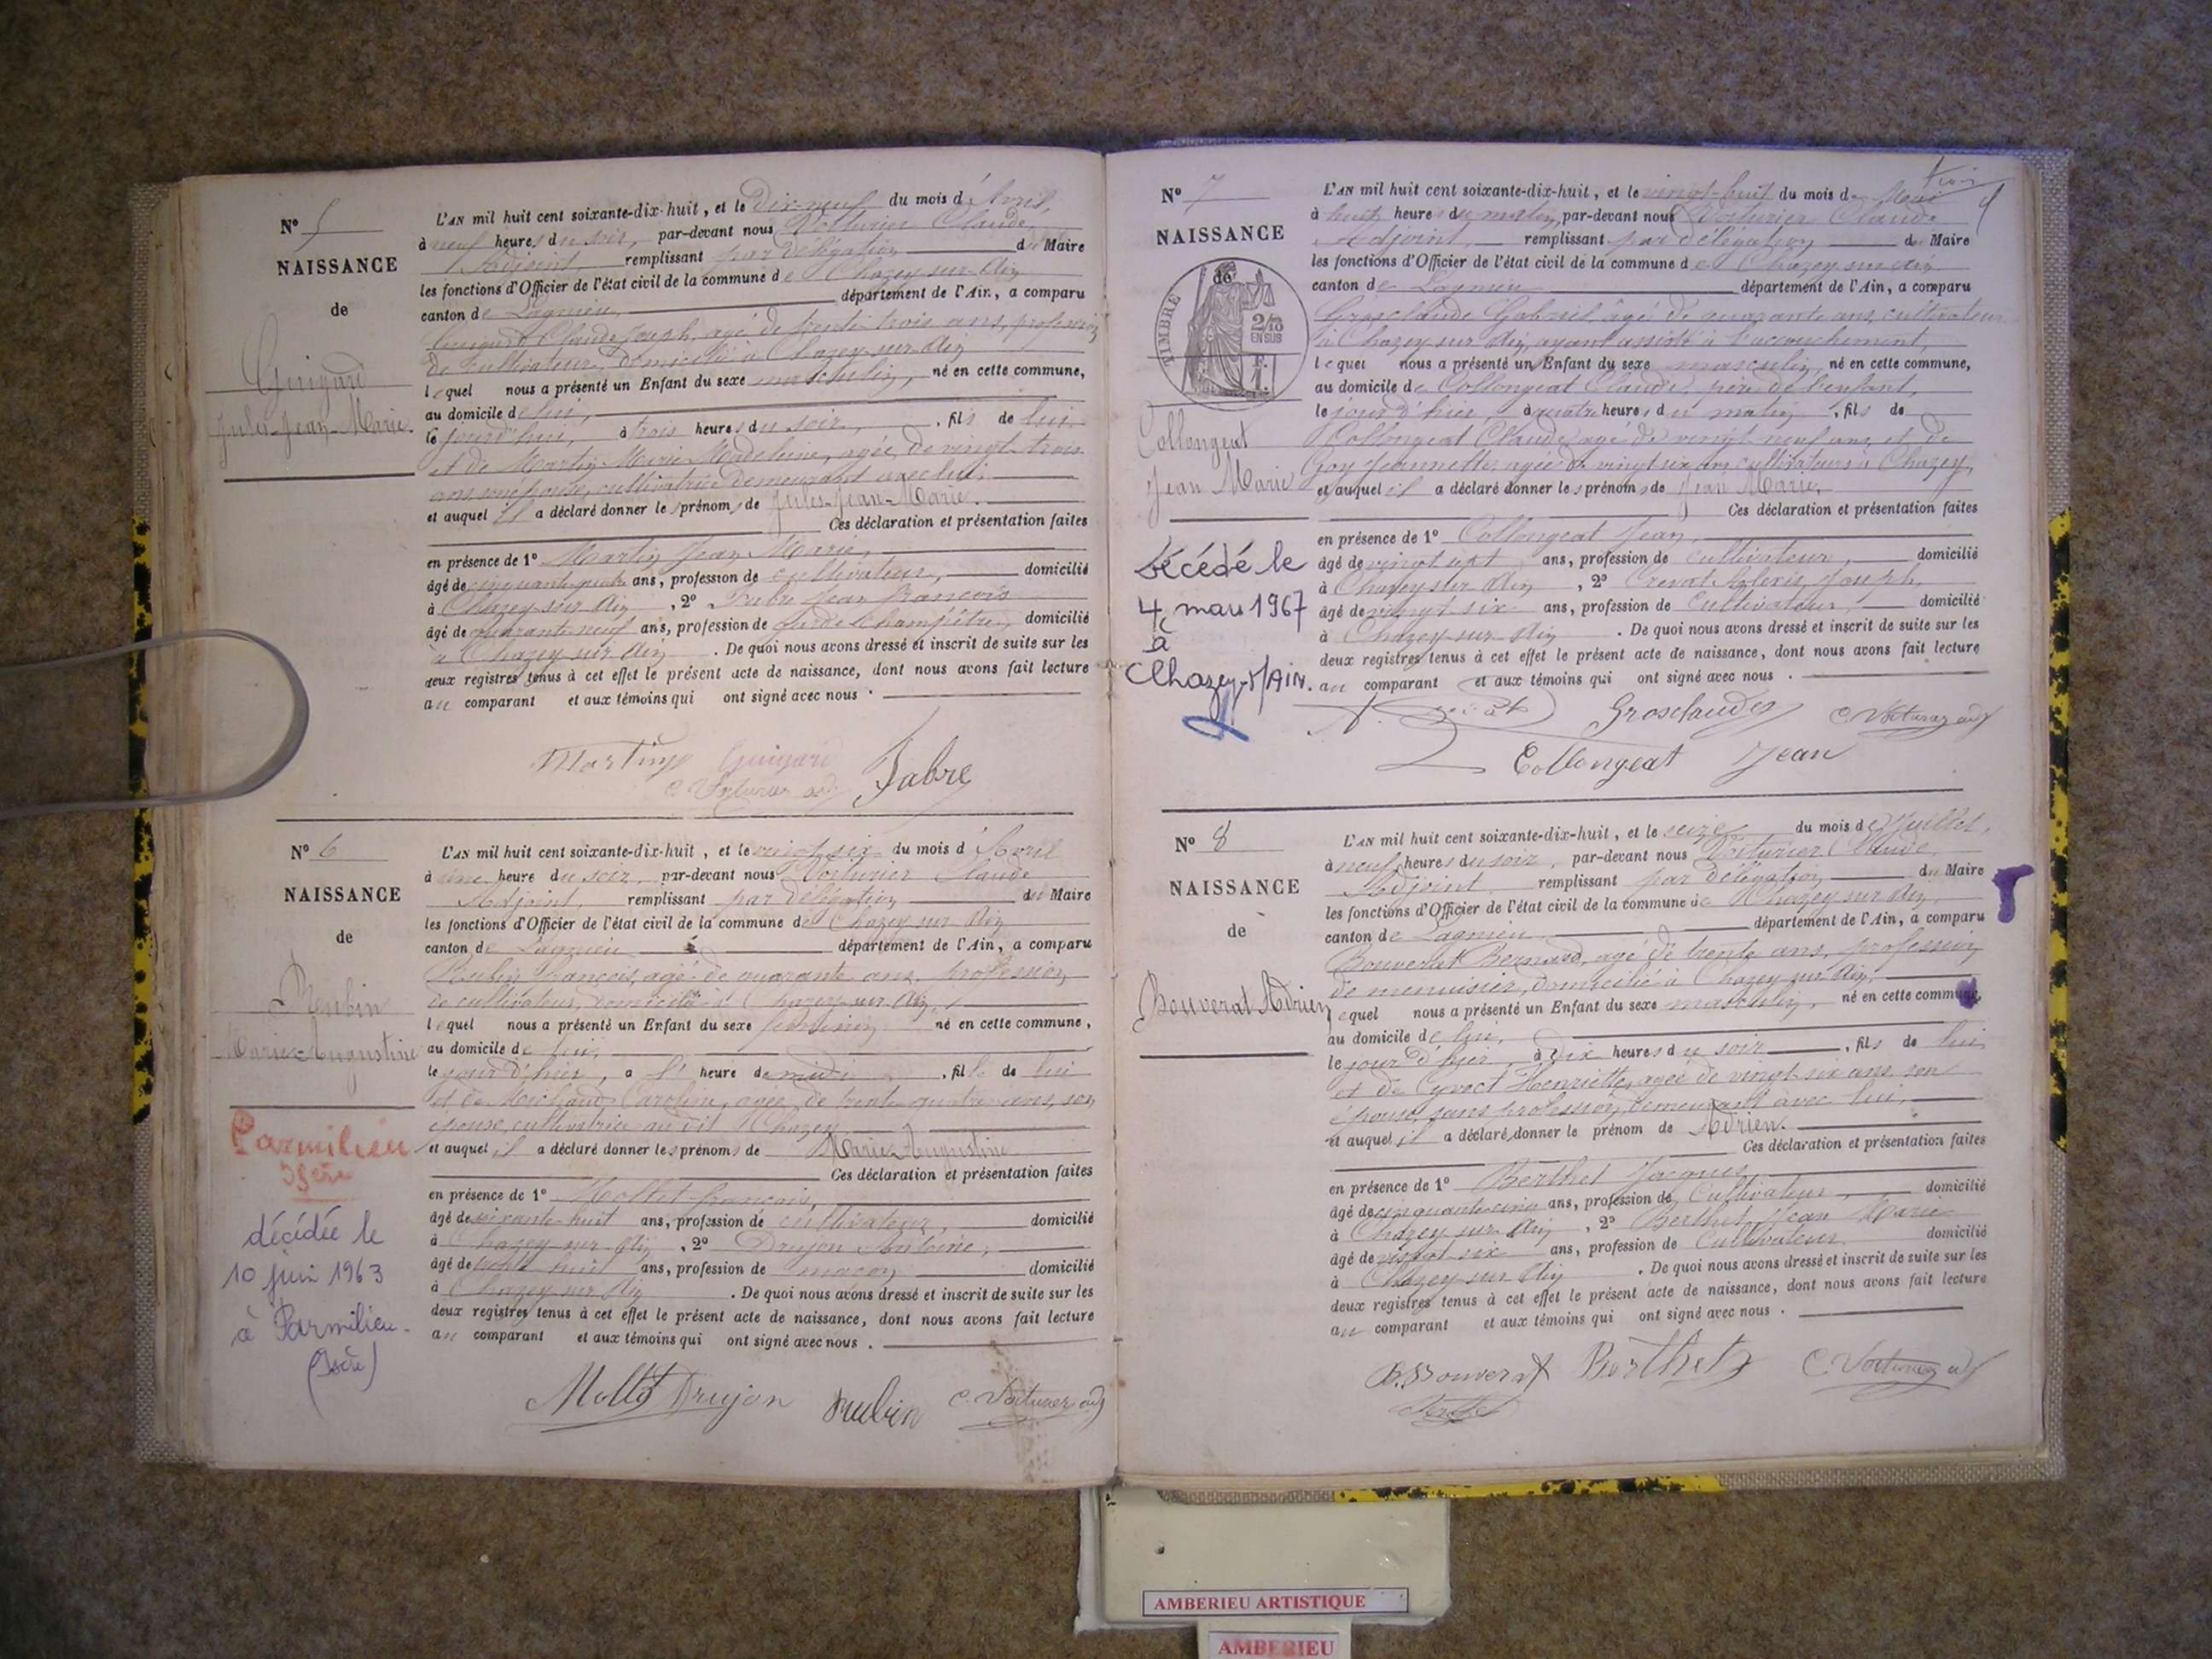 N° 5
NAISSANCE
de
Guigard
Jules-Jean-Marie
L'AN mil huit cent soixante-dix-huit, et le Dix-neuf du mois d'Avril,
à neuf heures du soir, par-devant nous Voiturier Claude,
Adjoint, remplissant par délégation du Maire
les fonctions d'Officier de l'état civil de la commune de Chazey-sur-Ain
canton de Lagnieu, département de l'Ain, a comparu
Guigard Claude Joseph, agé de trente-trois ans, profession
de cultivateur, domicilié à Chazey-sur-Ain
lequel nous a présenté un Enfant du sexe masculin, né en cette commune,
au domicile de lui,
le jourd'hui, à trois heures du soir, fils de lui
et de Martin Marie Madeleine, agée de vingt-trois
ans, son épouse, cultivatrice demeurant avec lui,
et auquel il a déclaré donner les prénoms de Jules-Jean-Marie.
Ces déclaration et présentation faites
en présence de 1° Martin Jean Marie,
âgé de cinquante ans, profession de cultivateur, domicilié
à Chazey-sur-Ain, 2° Fabre Jean François
âgé de quarante-neuf ans, profession de garde champêtre, domicilié
à Chazey-sur-Ain. De quoi nous avons dressé et inscrit de suite sur les
deux registres tenus à cet effet le présent acte de naissance, dont nous avons fait lecture
au comparant et aux témoins qui ont signé avec nous.
Martin Guigard Fabre
C. Voiturier adj
N° 6
NAISSANCE
de
Reubin
Marie-Augustine
Parmilieu
Isère
décédée le
10 juin 1963
à Parmilieu.
(Isère)
L'AN mil huit cent soixante-dix-huit, et le vingt-six du mois d'Avril
à une heure du soir, par-devant nous Voiturier Claude
Adjoint, remplissant par délégation du Maire
les fonctions d'Officier de l'état civil de la commune de Chazey sur Ain
canton de Lagnieu département de l'Ain, a comparu
Reubin François, agé de quarante ans, profession
de cultivateur, domicilié à Chazey sur Ain,
lequel nous a présenté un Enfant du sexe féminin né en cette commune,
au domicile de lui,
le jour d'hier, a l'heure de midi, fille de lui
et de Michaud Caroline, agée de trente quatre ans, son
épouse, cultivatrice au dit Chazey
et auquel il a déclaré donner les prénoms de Marie-Augustine
Ces déclaration et présentation faites
en présence de 1° Mollet François,
âgé de soixante-huit ans, profession de cultivateur, domicilié
à Chazey-sur-Ain, 2° Drujon Antoine,
âgé de huit ans, profession de maçon domicilié
à Chazey-sur-Ain. De quoi nous avons dressé et inscrit de suite sur les
deux registres tenus à cet effet le présent acte de naissance, dont nous avons fait lecture
au comparant et aux témoins qui ont signé avec nous.
Mollet Drujon Reubin C. Voiturier adj
N° 7
NAISSANCE
de
TIMBRE
2/10
EN SUS
Collongeat
Jean Marie
Décédé le
4 mars 1967
à
Chazey-s/AIN.
L'AN mil huit cent soixante-dix-huit, et le vingt-huit du mois de
à huit heures du matin, par-devant nous Voiturier Claude
Adjoint, remplissant par délégation du Maire
les fonctions d'Officier de l'état civil de la commune de Chazey sur Ain
canton de Lagnieu département de l'Ain, a comparu
Grosclaude Gabriel, âgé de quarante ans, cultivateur
à Chazey sur Ain, ayant assisté à l'accouchement,
lequel nous a présenté un Enfant du sexe masculin, né en cette commune,
au domicile de Collongeat Claude, père de l'enfant,
le jour d'hier, à quatre heures du matin, fils de
Collongeat Claude, agé de vingt-neuf ans et de
Goy Jeannette, agée de vingt six ans, cultivateurs à Chazey,
et auquel il a déclaré donner les prénoms de Jean Marie.
Ces déclaration et présentation faites
en présence de 1° Collongeat Jean,
âgé de vingt sept ans, profession de cultivateur, domicilié
à Chazey sur Ain, 2° Alexis Joseph,
âgé de vingt six ans, profession de Cultivateur, domicilié
à Chazey-sur-Ain. De quoi nous avons dressé et inscrit de suite sur les
deux registres tenus à cet effet le présent acte de naissance, dont nous avons fait lecture
au comparant et aux témoins qui ont signé avec nous.
Grosclaude C. Voiturier adj
Collongeat Jean
N° 8
NAISSANCE
de
Bouverat Adrien
L'AN mil huit cent soixante-dix-huit, et le seize du mois de Juillet,
à neuf heures du soir, par-devant nous Voiturier Claude,
Adjoint remplissant par délégation du Maire
les fonctions d'Officier de l'état civil de la commune de Chazey sur Ain,
canton de Lagnieu département de l'Ain, a comparu
Bouverat Bernard, agé de trente ans, profession
de menuisier, domicilié à Chazey sur Ain,
lequel nous a présenté un Enfant du sexe masculin, né en cette commune,
au domicile de lui,
le jour d'hier, à dix heures du soir, fils de lui
et de Henriette, agée de vingt six ans, son
épouse, sans profession, demeurant avec lui,
et auquel il a déclaré donner le prénom de Adrien.
Ces déclaration et présentation faites
en présence de 1° Berthet Jacques,
âgé de cinquante-cinq ans, profession de Cultivateur, domicilié
à Chazey sur Ain, 2° Berthet Jean Marie
âgé de vingt six ans, profession de Cultivateur domicilié
à Chazey-sur-Ain. De quoi nous avons dressé et inscrit de suite sur les
deux registres tenus à cet effet le présent acte de naissance, dont nous avons fait lecture
au comparant et aux témoins qui ont signé avec nous.
B. Bouverat Berthet C. Voiturier adj
AMBERIEU ARTISTIQUE
AMBERIEU